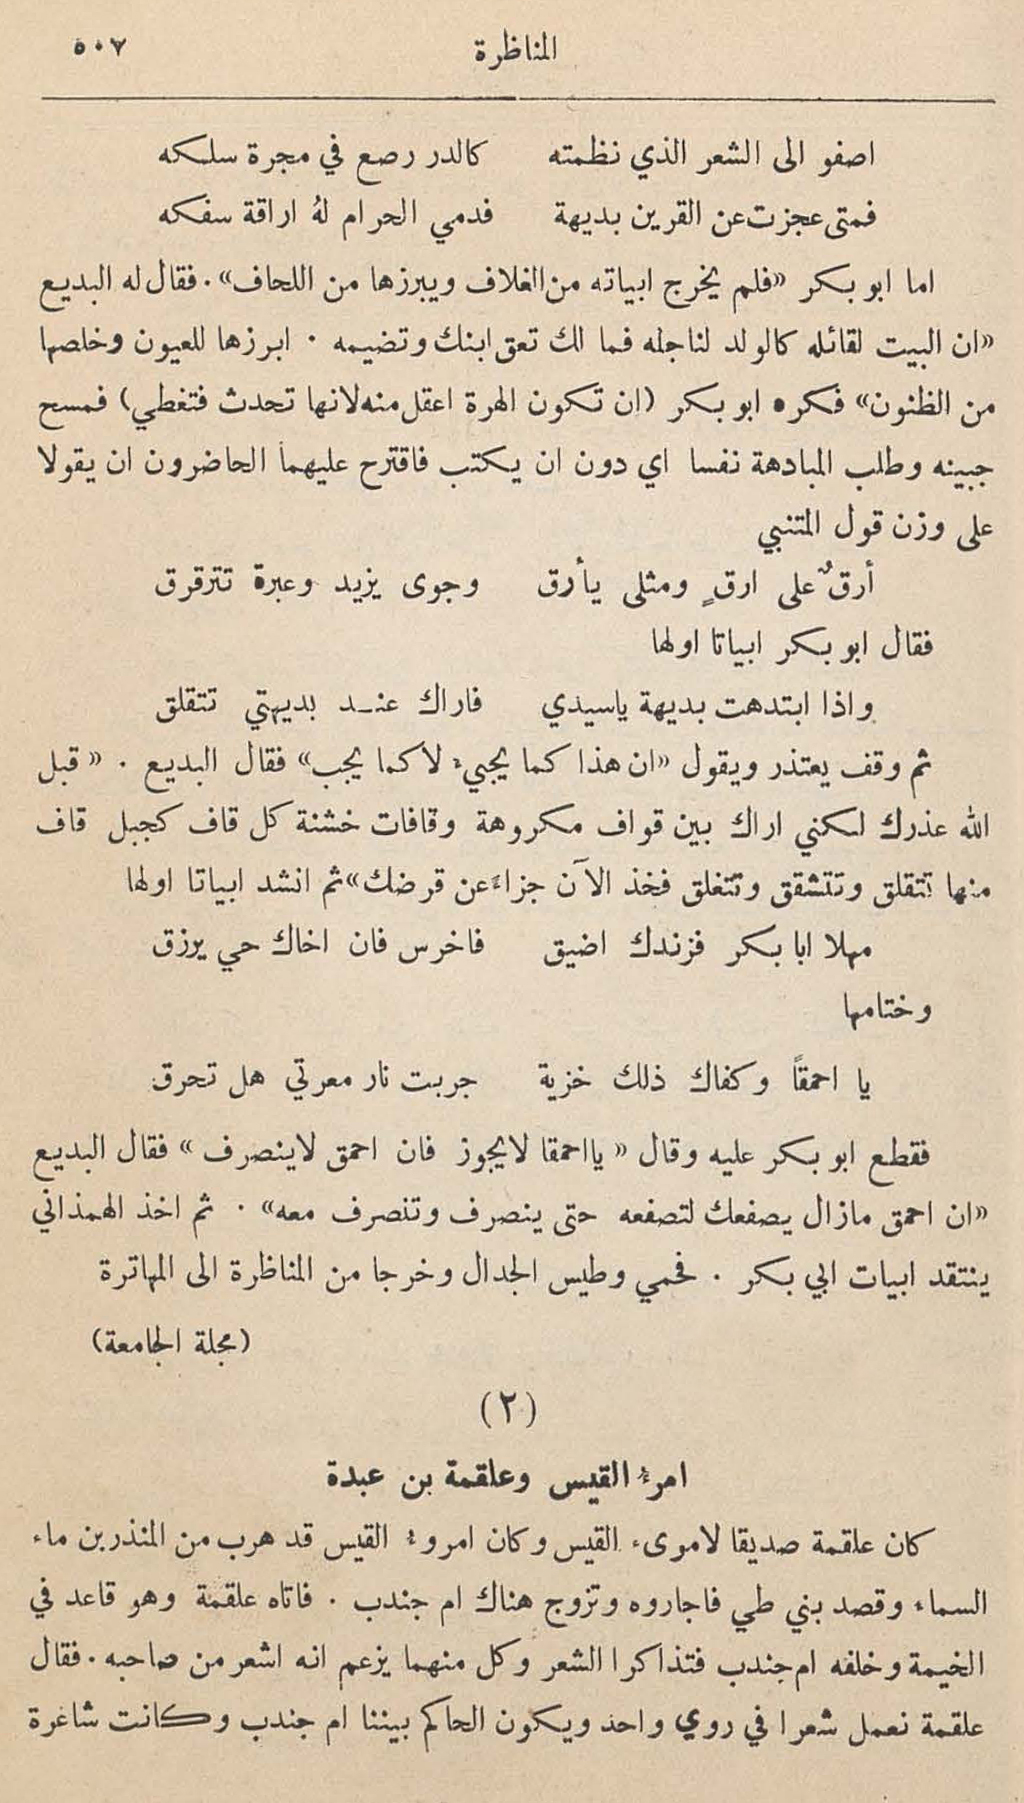 المناظرة ٥٠٧
اصفو الى الشعر الذي نظمته كالدر رصع في مجرة سلكه
فمتى عجزت عن القرين بديهة فدمي الحرام لهُ اراقة سفكه
اما ابو بكر «فلم يخرج ابياته من الغلاف ويبرزها من اللحاف». فقال له البديع
«ان البيت لقائله كالولد لناجله فما لك تعق ابنك وتضيمه . ابرزها للعيون وخلصها
من الظنون» فكره ابو بكر (ان تكون الهرة اعقل منه لانها تحدث فتغطي) فمسح
جبينه وطلب المبادهة نفسا اي دون ان يكتب فاقترح عليهما الحاضرون ان يقولا
على وزن قول المتنبي
أرقٌ على ارقٍ ومثلى يأرق وجوى يزيد وعبرة تترقرق
فقال ابو بكر ابياتا اولها
واذا ابتدهت بديهة ياسيدي فاراك عند بديهتي تتقلق
ثم وقف يعتذر ويقول «ان هذا كما يجيء لا كما يجب» فقال البديع . «قبل
الله عذرك لكني اراك بين قواف مكروهة وقافات خشنة كل قاف كجبل قاف
منها تتقلق وتتشقق وتتغلق فخذ الآن جزاءً عن قرضك» ثم انشد ابياتا اولها
مهلا ابا بكر فزندك اضيق فاخرس فان اخاك حي يرزق
وختامها
يا احمقاً وكفاك ذلك خزية جربت نار معرتي هل تحرق
فقطع ابو بكر عليه وقال «يااحمقا لايجوز فان احمق لاينصرف» فقال البديع
«ان احمق مازال يصفعك لتصفعه حتى ينصرف وتنصرف معه» . ثم اخذ الهمذاني
ينتقد ابيات ابي بكر . فحمي وطيس الجدال وخرجا من المناظرة الى المهاترة
(مجلة الجامعة)
(٢)
امرء القيس وعلقمة بن عبدة
كان علقمة صديقا لامرىء القيس وكان امروء القيس قد هرب من المنذر بن ماء
السماء وقصد بني طي فاجاروه وتزوج هناك ام جندب . فاتاه علقمة وهو قاعد في
الخيمة وخلفه ام جندب فتذاكرا الشعر وكل منهما يزعم انه اشعر من صاحبه . فقال
علقمة نعمل شعرا في روي واحد ويكون الحاكم بيننا ام جندب وكانت شاعرة